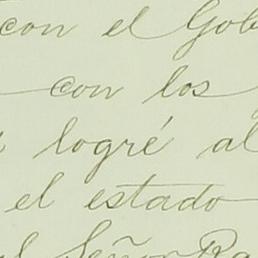 con el Gob
con los
logré al
el estado
el Señor Ra